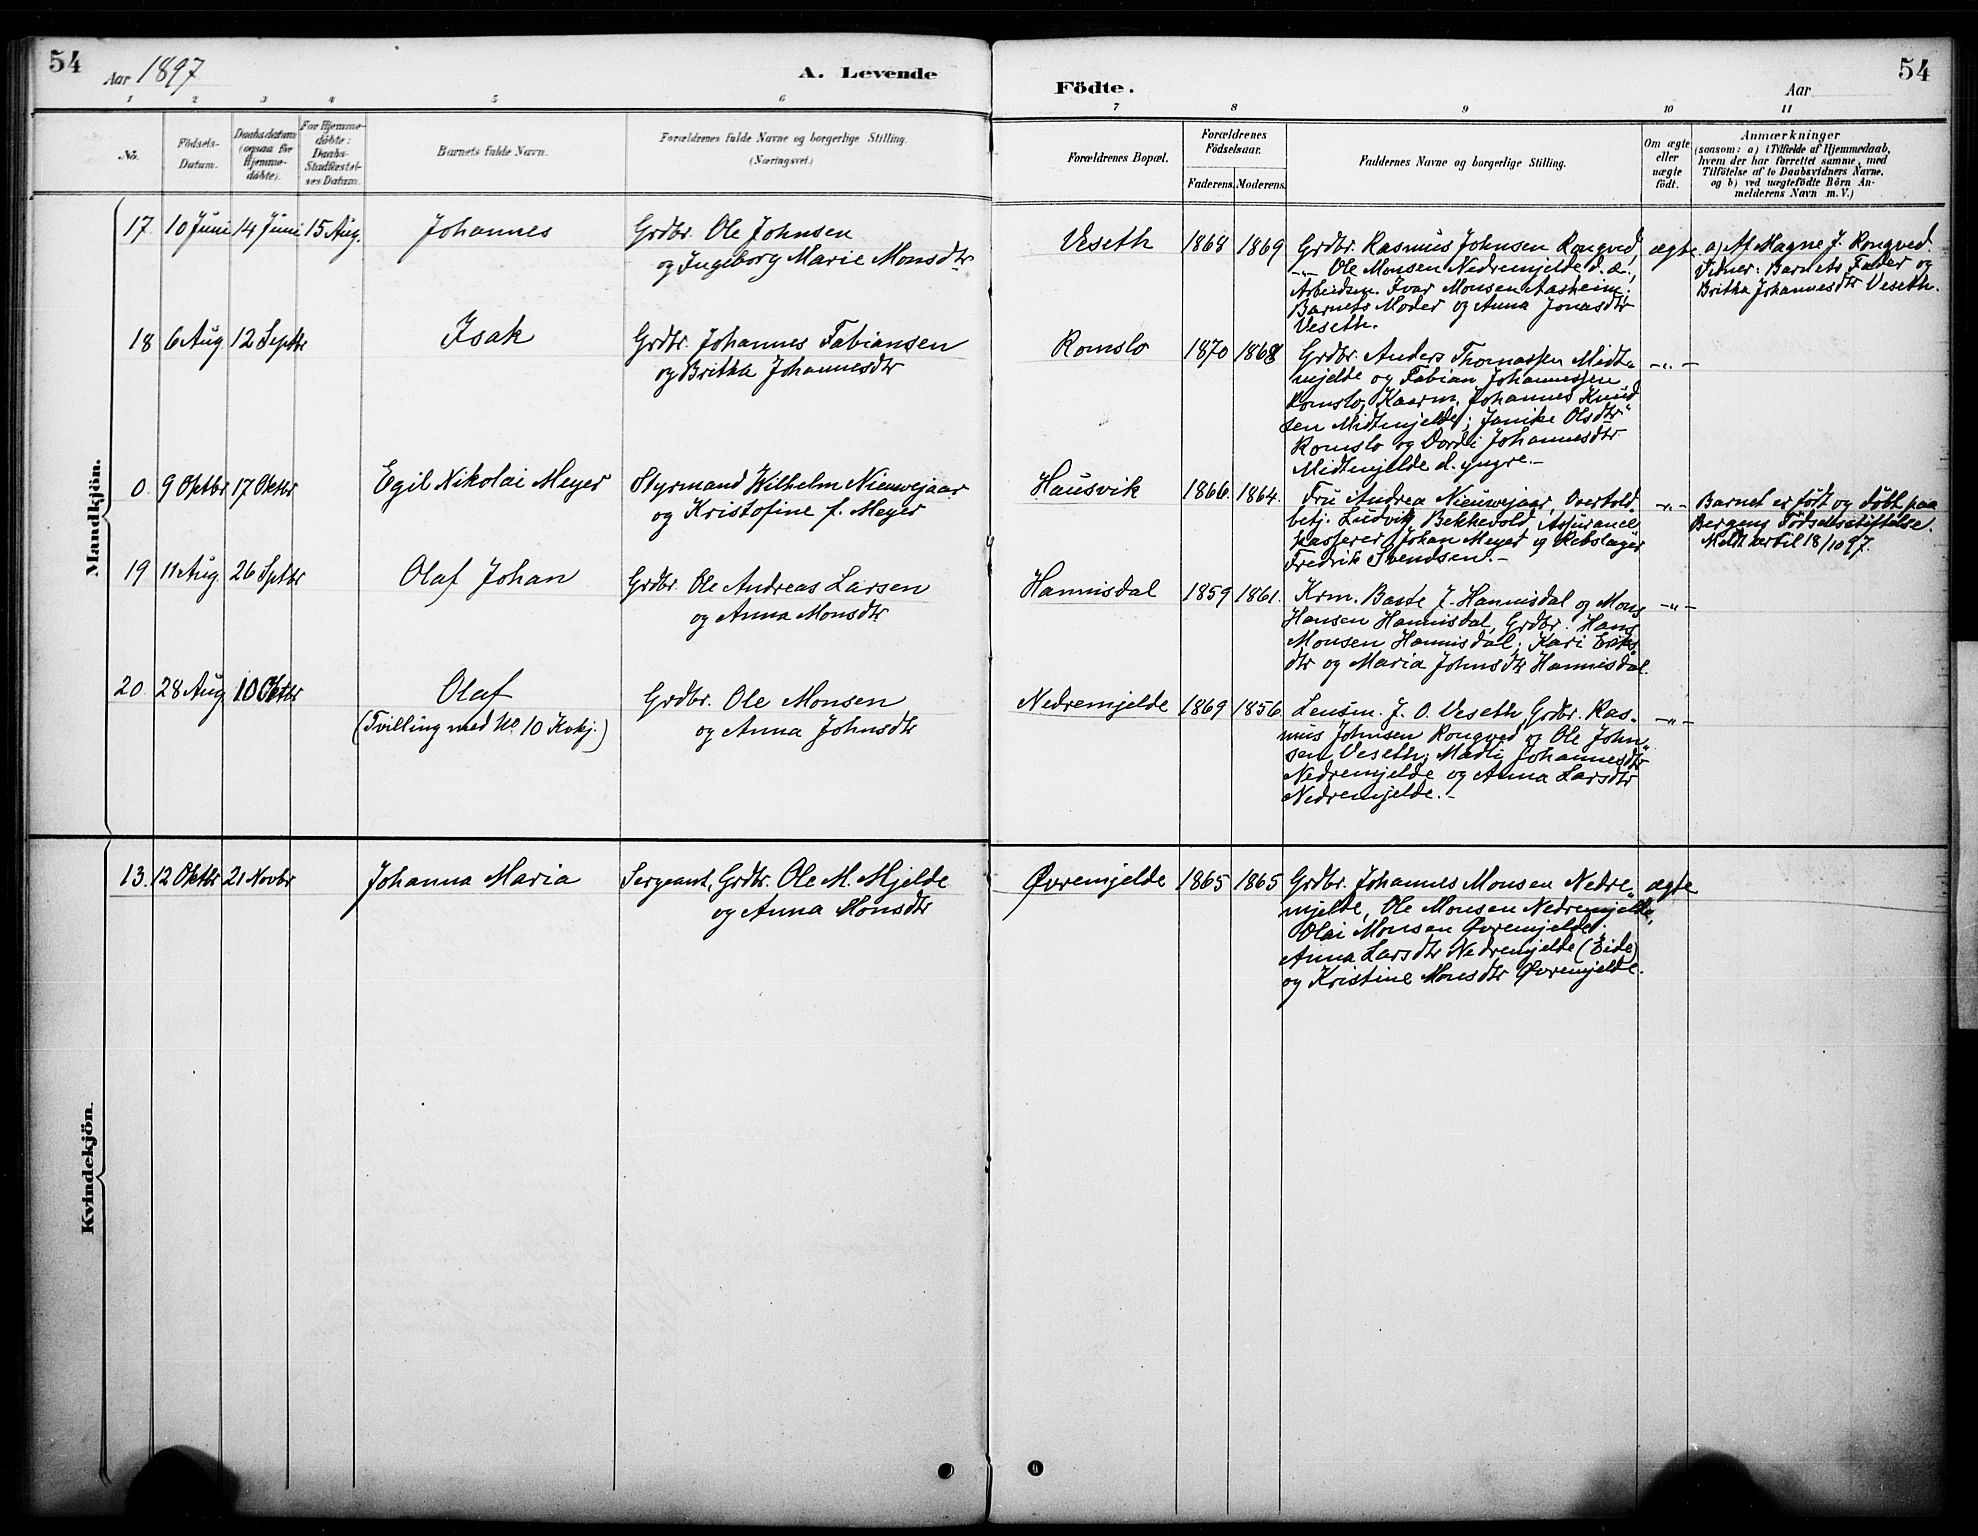 54
Aar 1897
A. Levende
Födte.
Aar
54
1 2 3 4 5 6 7 8 9 10 11
No.
Födsels-
Datum.
Daabsdatum
(ogsaa for
Hjemme-
döbte).
For Hjemme-
döbte:
Daabs-
Stadfæstel-
ses Datum.
Barnets fulde Navn.
Forældrenes fulde Navne og borgerlige Stilling.
(Næringsvei.)
Forældrenes Bopæl.
Forældrenes
Födselsaar.
Faderens. Moderens.
Faddernes Navne og borgerlige Stilling.
Om ægte
eller
uægte
födt.
Anmærkninger
(saasom: a) i Tilfælde af Hjemmedaab,
hvem der har forrettet samme, med
Tilföielse af to Daabsvidners Navne.
og b) ved uægtefödte Börn An-
melderens Navn m. V.)
Mandkjön.
17. 10 Juni 14 Juni 15 Aug. Johannes
Grdbr. Ole Johnsen
og Ingeborg Marie Monsdtr
Veseth 1868 1869
Grdbr. Rasmus Johnsen Rongved,
-"- Ole Monsen Nedremjelde d. æ.,
Arbeidsm. Ivar Monsen Aasheim;
Barnets Moder og Anna Jonasdtr
Veseth.
ægte
a) Af Magne J. Rongved.
Vidner: Barnets Fader og
Britha Johannesdtr Veseth.
18 6 Aug 12 Septbr Isak
Grdbr. Johannes Fabiansen
og Britha Johannesdtr
Romslo 1870 1868
Grdbr. Anders Thomassen Midt-
mjelde og Fabian Johannessen
Romslo, Kaarm. Johannes Knud
sen Midtmjelde; Janike Olsdtr
Romslo og Dordi Johannesdtr
Midtmjelde d. yngre.-
-"-
0. 9 Oktbr 17 Oktbr Egil Nikolai Meyer
Styrmand Wilhelm Nieuwejaar
og Kristofine f. Meyer
Hausvik 1866. 1864.
Fru Andrea Nieuwejaar, Overtold
betj. Ludvig Bekkevold, Assurance
kasserer Johan Meyer og Rebslager
Fredrik Svendsen.-
-"-
Barnet er født og døbt paa
Bergens Fødselsstiftelse.
Meldt hertil 18/10 97.
19 11 Aug. 26 Septbr Olaf Johan
Grdbr. Ole Andreas Larsen
og Anna Monsdtr
Hannisdal 1859 1861.
Krm. Baste J. Hannisdal og Mons
Hansen Hannisdal, Grdbr. Hans
Monsen Hannisdal; Kari Eriks
dtr og Maria Johnsdtr Hannisdal.
-"-
20. 28 Aug 10 Oktbr Olaf
(Tvilling med No 10 Kvkj.)
Grdbr. Ole Monsen
og Anna Johnsdtr
Nedremjelde 1869 1856
Lensm. J. O. Veseth, Grdbr. Ras-
mus Johnsen Rongved og Ole John
sen Veseth; Madli Johannesdtr
Nedremjelde og Anna Larsdtr
Nedremjelde.-
-"-
Kvindekjön.
13. 12 Oktbr 21 Novbr Johanna Maria
Sergeant, Grdbr. Ole M. Mjelde
og Anna Monsdtr
Øvremjelde 1865 1865
Grdbr. Johannes Monsen Nedre-
mjelde, Ole Monsen Nedremjelde,
Olai Monsen Øvremjelde;
Anna Larsdtr Nedremjelde (Eide)
og Kristine Monsdtr Øvremjelde.
ægte